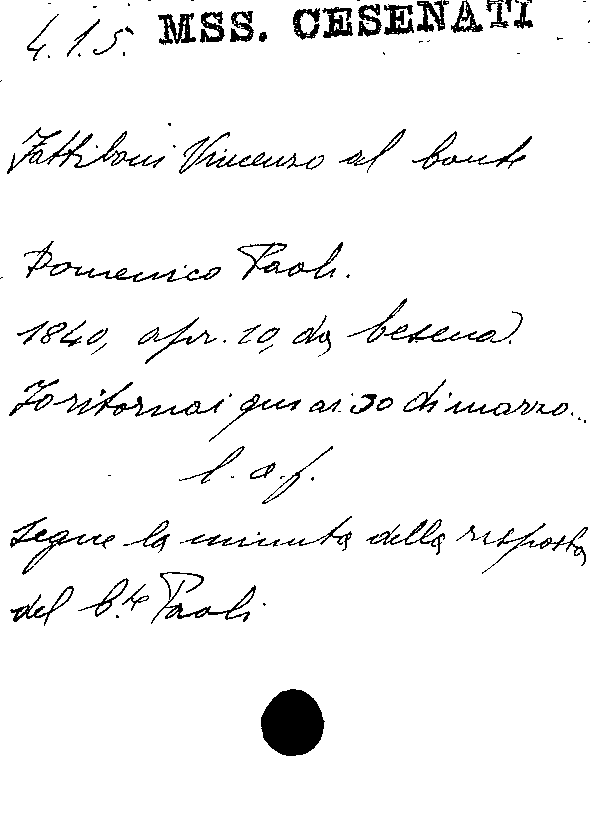 4.1.5. MSS. CESENATI
Fattiboni Vincenzo al Conte
Domenico Paoli.
1840, apr. 10, da Cesena.
Io ritornai qui ai 30 di marzo...
l. a. f.
segue la minuta della risposta
del C.te Paoli